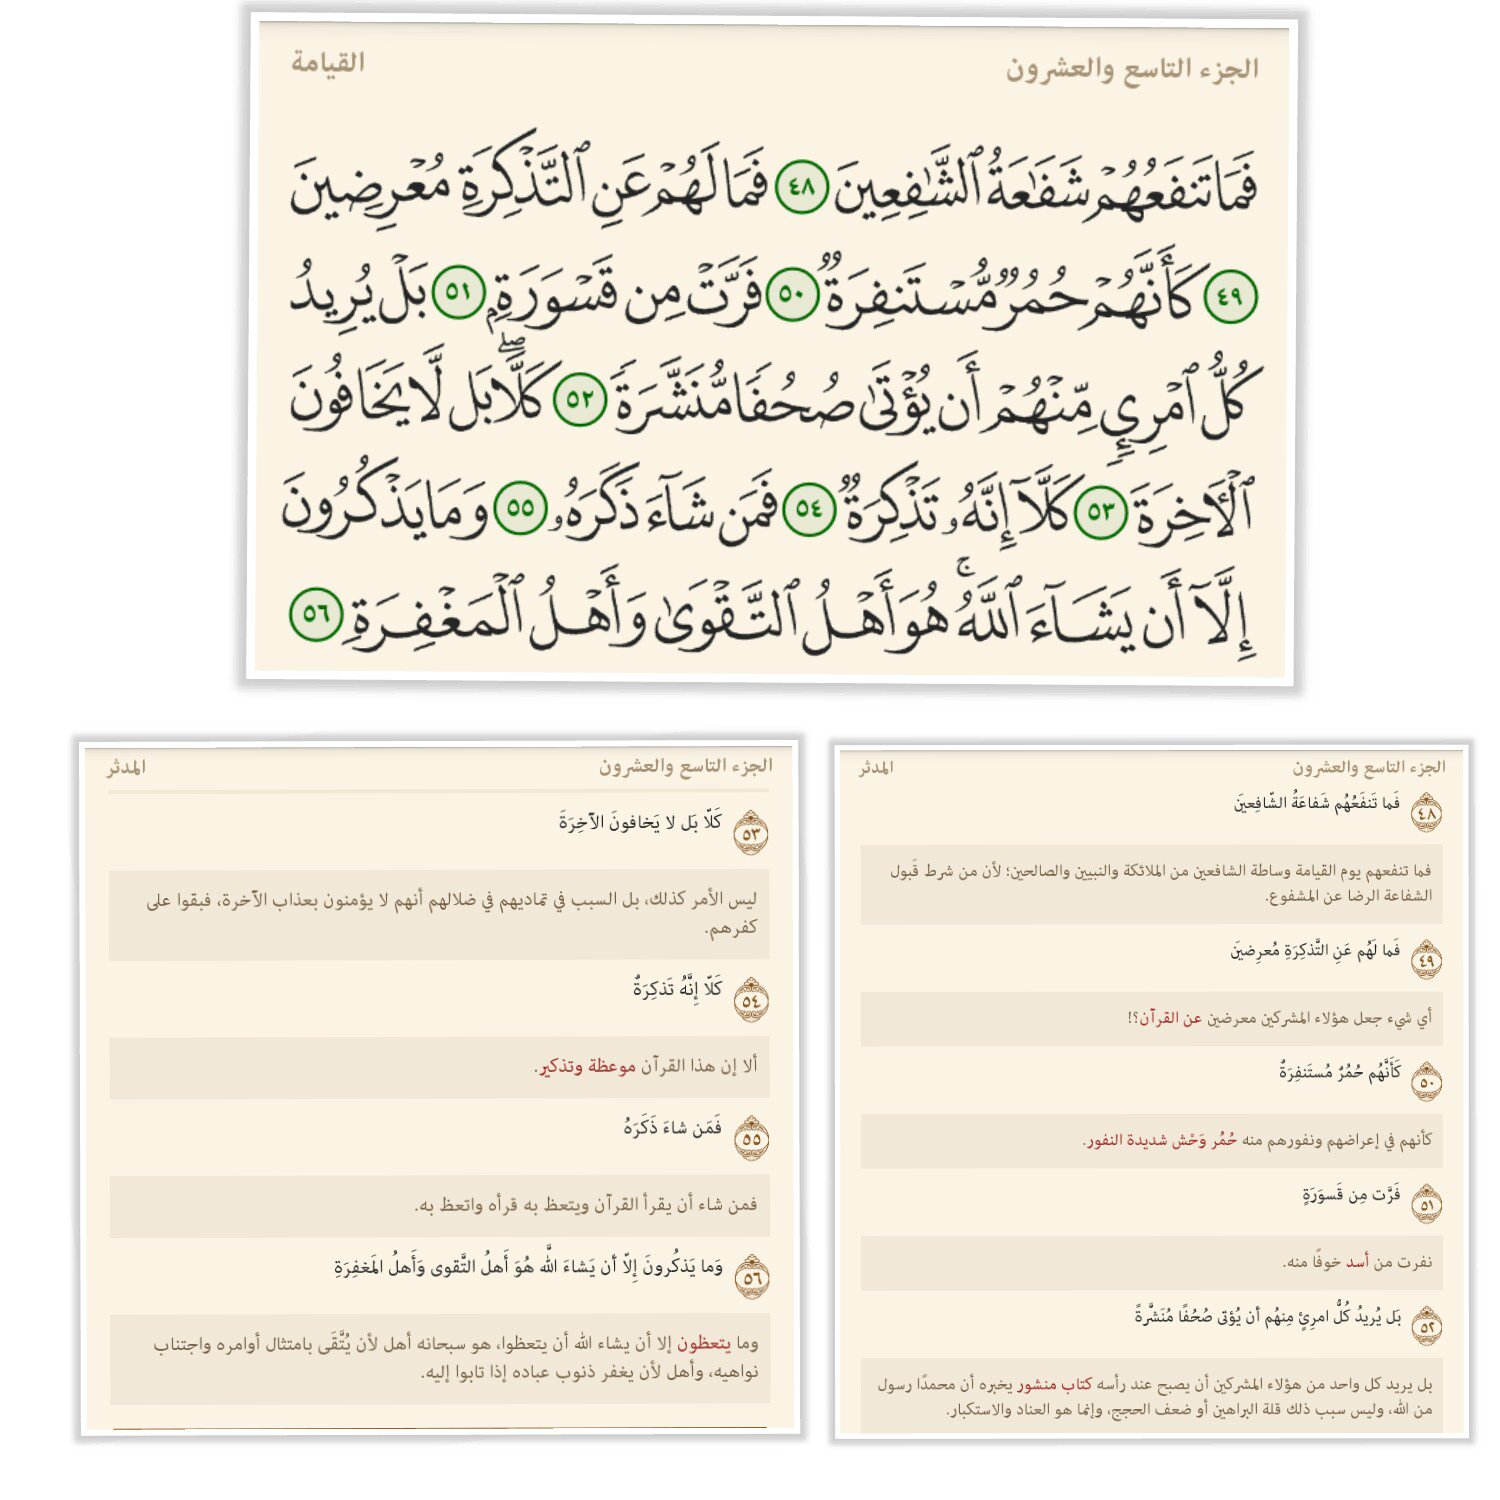 الجزء التاسع والعشرون
القيامة
فَمَا تَنفَعُهُمْ شَفَٰعَةُ ٱلشَّٰفِعِينَ ٤٨ فَمَا لَهُمْ عَنِ ٱلتَّذْكِرَةِ مُعْرِضِينَ
٤٩ كَأَنَّهُمْ حُمُرٌ مُّسْتَنفِرَةٌ ٥٠ فَرَّتْ مِن قَسْوَرَةٍۭ ٥١ بَلْ يُرِيدُ
كُلُّ ٱمْرِئٍ مِّنْهُمْ أَن يُؤْتَىٰ صُحُفًا مُّنَشَّرَةً ٥٢ كَلَّاۖ بَل لَّا يَخَافُونَ
ٱلْأٓخِرَةَ ٥٣ كَلَّآ إِنَّهُۥ تَذْكِرَةٌ ٥٤ فَمَن شَآءَ ذَكَرَهُۥ ٥٥ وَمَا يَذْكُرُونَ
إِلَّآ أَن يَشَآءَ ٱللَّهُۚ هُوَ أَهْلُ ٱلتَّقْوَىٰ وَأَهْلُ ٱلْمَغْفِرَةِ ٥٦
الجزء التاسع والعشرون
المدثر
٤٨ فَما تَنفَعُهُم شَفاعَةُ الشّافِعينَ
فما تنفعهم يوم القيامة وساطة الشافعين من الملائكة والنبيين والصالحين؛ لأن من شرط قَبول
الشفاعة الرضا عن المشفوع.
٤٩ فَما لَهُم عَنِ التَّذكِرَةِ مُعرِضينَ
أي شيء جعل هؤلاء المشركين معرضين عن القرآن؟!
٥٠ كَأَنَّهُم حُمُرٌ مُستَنفِرَةٌ
كأنهم في إعراضهم ونفورهم منه حُمُر وَحْش شديدة النفور.
٥١ فَرَّت مِن قَسوَرَةٍ
نفرت من أسد خوفًا منه.
٥٢ بَل يُريدُ كُلُّ امرِئٍ مِنهُم أن يُؤتى صُحُفًا مُنَشَّرَةً
بل يريد كل واحد من هؤلاء المشركين أن يصبح عند رأسه كتاب منشور يخبره أن محمدًا رسول
من الله، وليس سبب ذلك قلة البراهين أو ضعف الحجج، وإنما هو العناد والاستكبار.
الجزء التاسع والعشرون
المدثر
٥٣ كَلّا بَل لا يَخافونَ الآخِرَةَ
ليس الأمر كذلك، بل السبب في تماديهم في ضلالهم أنهم لا يؤمنون بعذاب الآخرة، فبقوا على
كفرهم.
٥٤ كَلّا إِنَّهُ تَذكِرَةٌ
ألا إن هذا القرآن موعظة وتذكير.
٥٥ فَمَن شاءَ ذَكَرَهُ
فمن شاء أن يقرأ القرآن ويتعظ به قرأه واتعظ به.
٥٦ وَما يَذكُرونَ إِلّا أن يَشاءَ اللَّه هُوَ أَهلُ التَّقوى وَأَهلُ المَغفِرَةِ
وما يتعظون إلا أن يشاء الله أن يتعظوا، هو سبحانه أهل لأن يُتَّقَى بامتثال أوامره واجتناب
نواهيه، وأهل لأن يغفر ذنوب عباده إذا تابوا إليه.